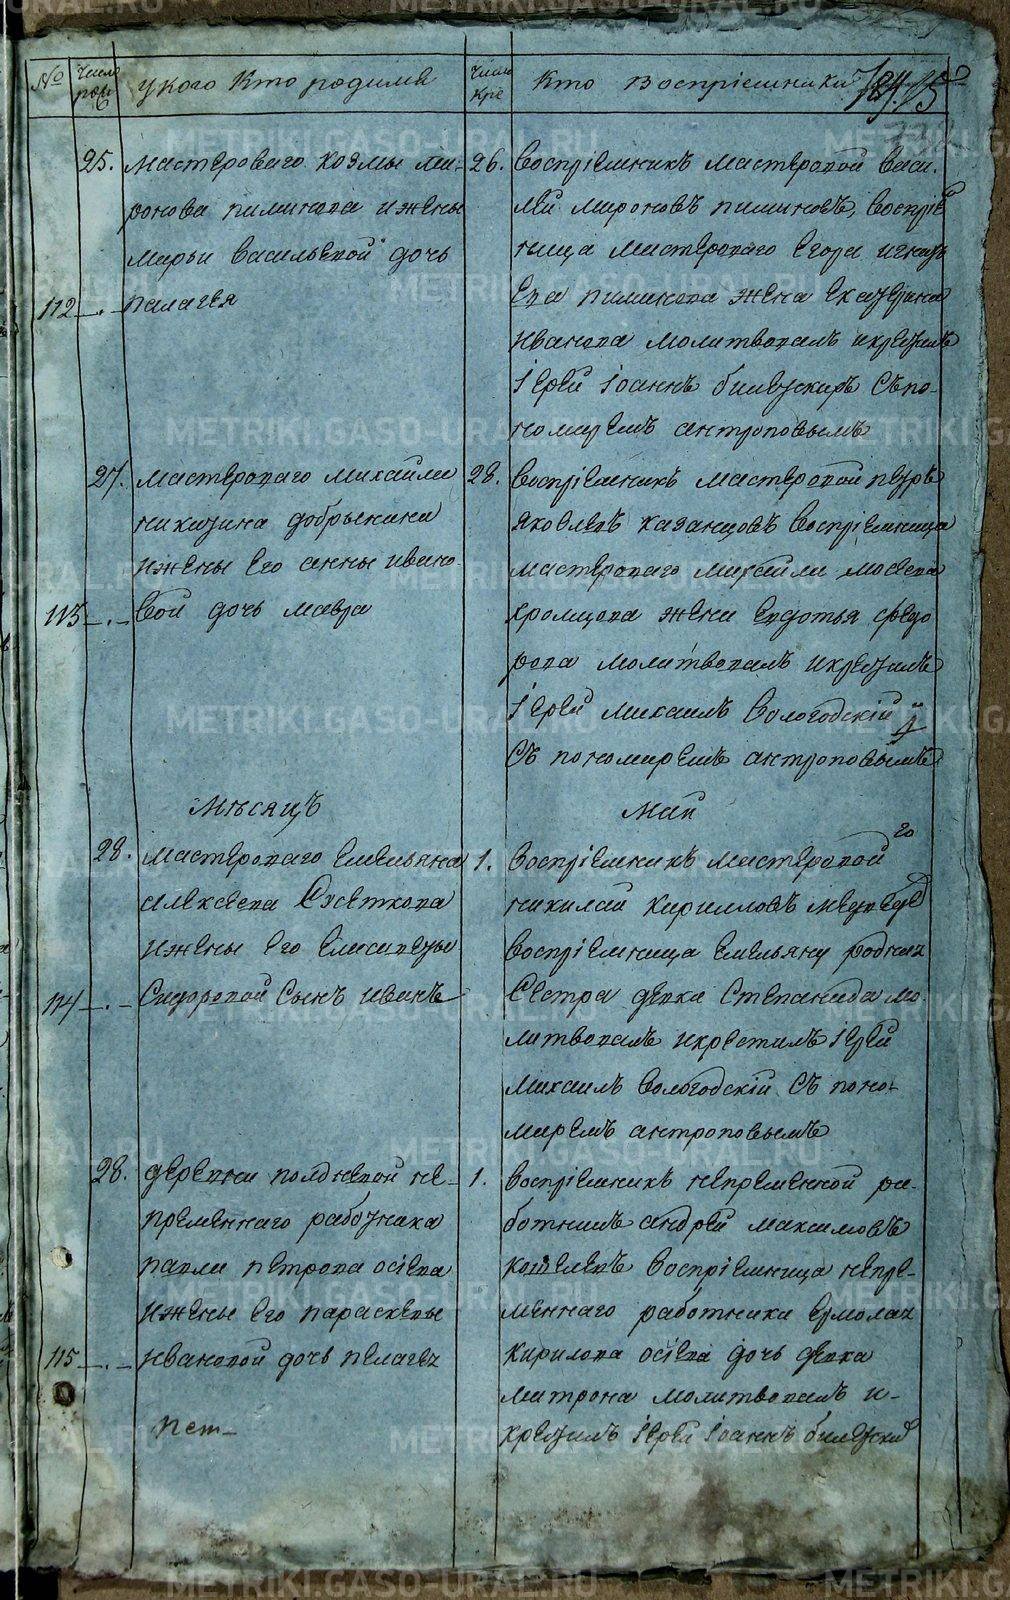 №
Число рож
у кого кто родился
Число кре
кто Воспріемники
25.
Мастероваго Козмы Ми-
ронова пиминова и жены
Марьи Васильевой дочь
112 палагея
26.
Воспріемникъ Мастеровой Васи-
лей Мироновъ пиминовъ, Воспріе
ница Мастероваго Егора игнать
ева пиминова жена Екатерина
Иванова молитвовалъ и крестилъ
Іерей Іоаннъ билетскиръ Съ по-
номаремъ антроповымъ
27.
Мастероваго Михайли
никитина добрынина
и жены Его анны ивано-
113 вой дочь мавра
28.
Воспріемникъ Мастеровой петръ
яковлевъ казанцовъ Воспріемница
мастероваго Михайли мосеева
хромцова жена Евдотья федо
рова молитвовалъ и крестилъ
Іерей Михаилъ Вологодскій
Съ пономаремъ антроповымъ
Мѣсяцъ
Май
28.
Мастероваго Емельяна
алексеева Сметкова
и жены Его Елисаветы
114 Сидоровой Сынъ иванъ
1.
Воспріемникъ мастеровой го
николай кирилловъ медведе
Воспріемница Емельяну родная
Сестра девка Степанида мо-
литвовалъ и крестилъ Іерей
Михаилъ Вологодскій Съ поно-
маремъ антроповымъ
28.
деревни полдневой не-
пременнаго работника
павла петрова осіева
и жены Его параскевы
115 ивановой дочь пелагея
1.
Воспріемникъ непременной ра-
ботникъ андрей максимовъ
кошелевъ Воспріемница непре-
меннаго работника Ермолая
кирилова осіева дочь девка
матрона молитвовалъ и
крестилъ Іерей Іоаннъ билетский
METRIKI.GASO-URAL.RU